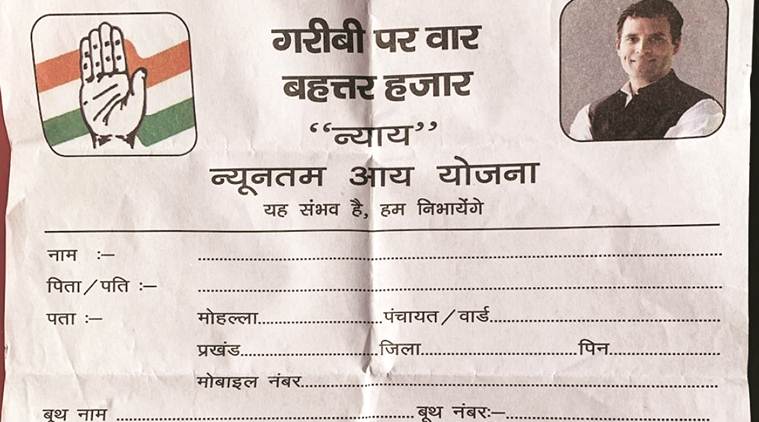 गरीबी पर वार
बहत्तर हजार
“न्याय”
न्यूनतम आय योजना
यह संभव है, हम निभायेंगे
नाम :–
पिता/पति :–
पता :– मोहल्ला..............................पंचायत/वार्ड..............................
प्रखंड..............................जिला..............................पिन..............................
मोबाइल नंबर..............................
बूथ नाम .............................. बूथ नंबरः–..............................